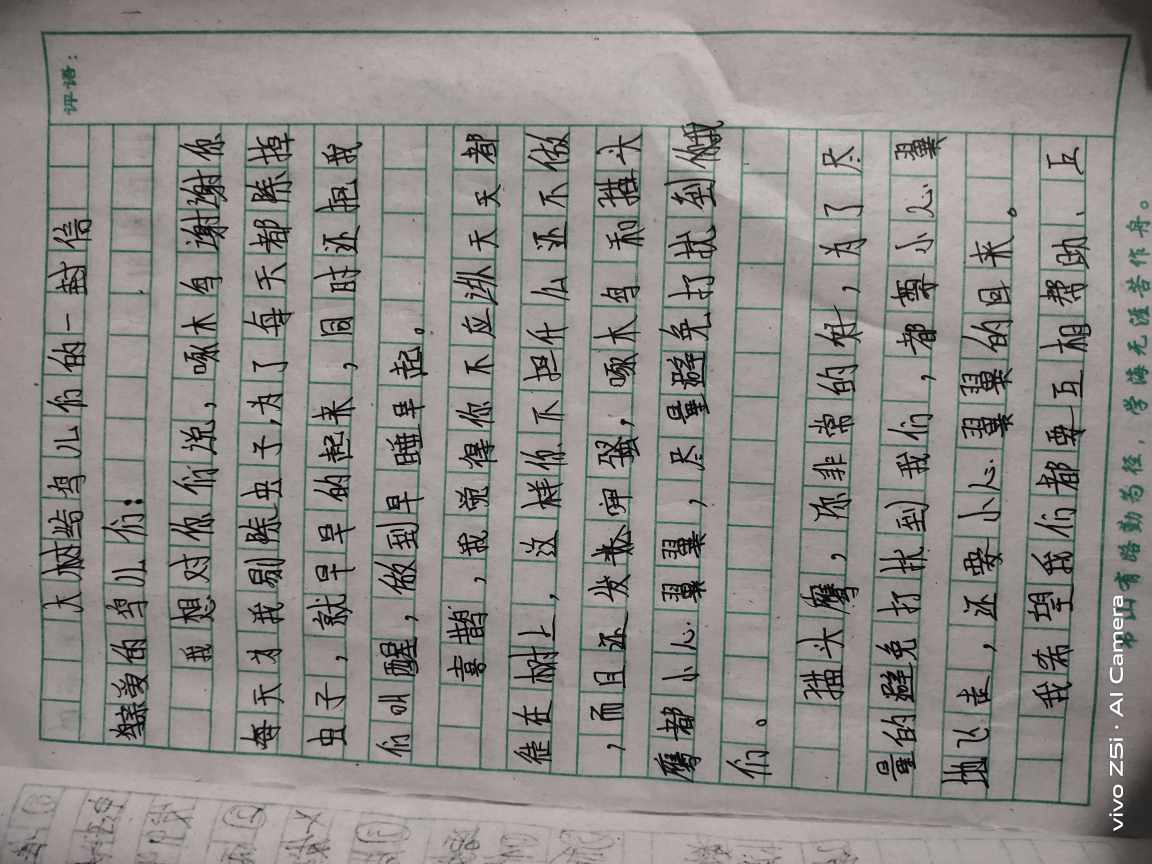 评语：
大树给鸟儿们的一封信
亲爱的鸟儿们：
我想对你们说，啄木鸟谢谢你
每天为我剔除虫子，为了每天都除掉
虫子，就早早的起来，同时还把我
们叫醒，做到早睡早起。
喜鹊，我觉得你不应该天天都
待在树上，这样你不担什么还不做
，而且还发出骚，啄木鸟和猫头
鹰都小心翼翼，尽量避免打扰到我
们。
猫头鹰，你非常的好，为了尽
量的避免打扰到我们，都要小心翼
地飞走，还要小心翼翼的回来。
我希望我们都要互相帮助、互
书山有路勤为径，学海无涯苦作舟。
vivo Z5i · AI Camera